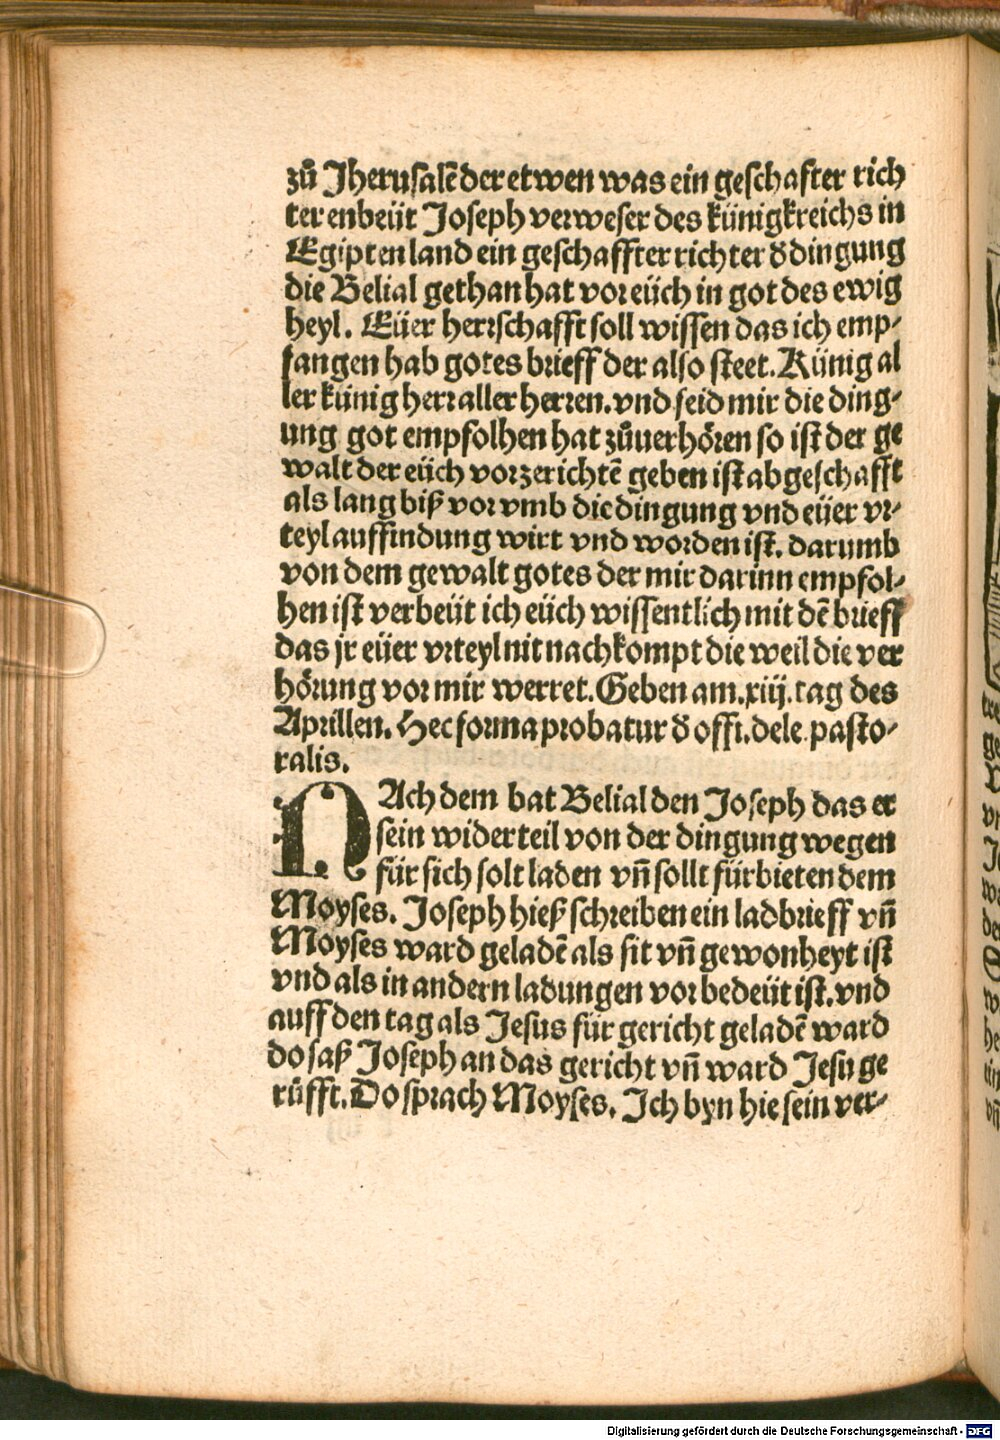 zů Jherusalē der etwen was ein geschafter rich
ter enbeüt Joseph verweser des künigkreichs in
Egipten land ein geschaffter richter d̕ dingung
die Belial gethan hat vor eüch in got des ewig
heyl. Eüer herrschafft soll wissen das ich emp-
fangen hab gotes brieff der also steet. Künig al
ler künig herr aller herren. vnd seid mir die ding-
ung got empfolhen hat zůuerhören so ist der ge
walt der eüch vor zerichtē geben ist abgeschafft
als lang biß vor vmb die dingung vnd eüer vr-
teyl auffindung wirt vnd worden ist. darumb
von dem gewalt gotes der mir darinn empfol-
hen ist verbeüt ich eüch wissentlich mit dē brieff
das jr eüer vrteyl nit nachkompt die weil die ver
hörung vor mir werret. Geben am .xiij. tag des
Aprillen. Hec forma probatur d̕ offi. dele. pasto-
ralis.
NAch dem bat Belial den Joseph das er
sein widerteil von der dingung wegen
für sich solt laden vñ sollt fürbieten dem
Moyses. Joseph hieß schreiben ein ladbrieff vñ
Moyses ward geladē als sit vñ gewonheyt ist
vnd als in andern ladungen vor bedeüt ist. vnd
auff den tag als Jesus für gericht geladē ward
do saß Joseph an das gericht vñ ward Jesu ge
rüfft. Do sprach Moyses. Ich byn hie sein ver-
Digitalisierung gefördert durch die Deutsche Forschungsgemeinschaft - DFG